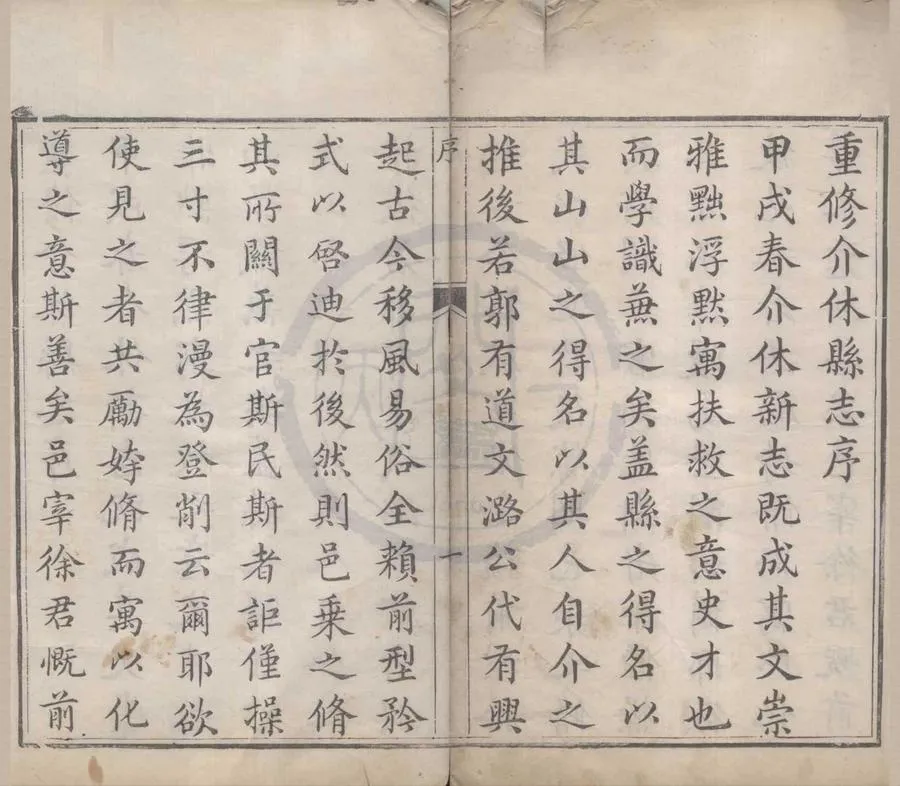 重修介休縣志序
甲戌春介休新志既成其文崇
雅黜浮默寓扶救之意史才也
而學識蕪之矣盖縣之得名以
其山山之得名以其人自介之
推後若郭有道文潞公代有興
序
一
起古今移風易俗全賴前型矜
式以啓迪扵後然則邑乗之脩
其所關于官斯民斯者詎僅操
三寸不律漫為登削云爾耶欲
使見之者共勵姱脩而寓以化
導之意斯善矣邑宰徐君慨前